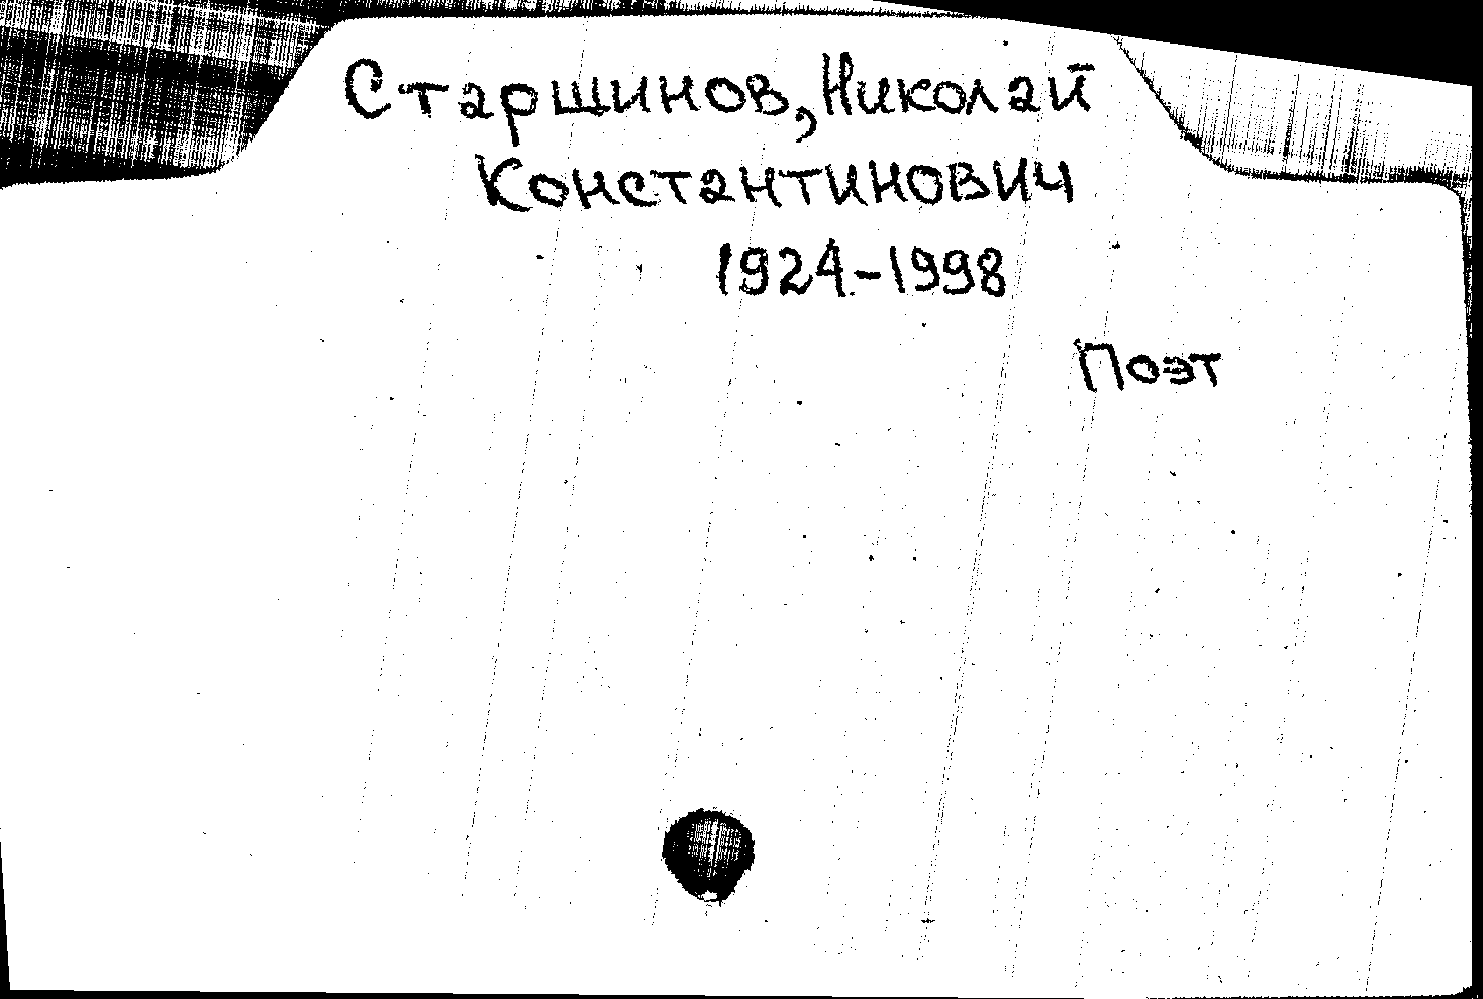 Старшинов, Николай
Константинович
1924-1998
Поэт